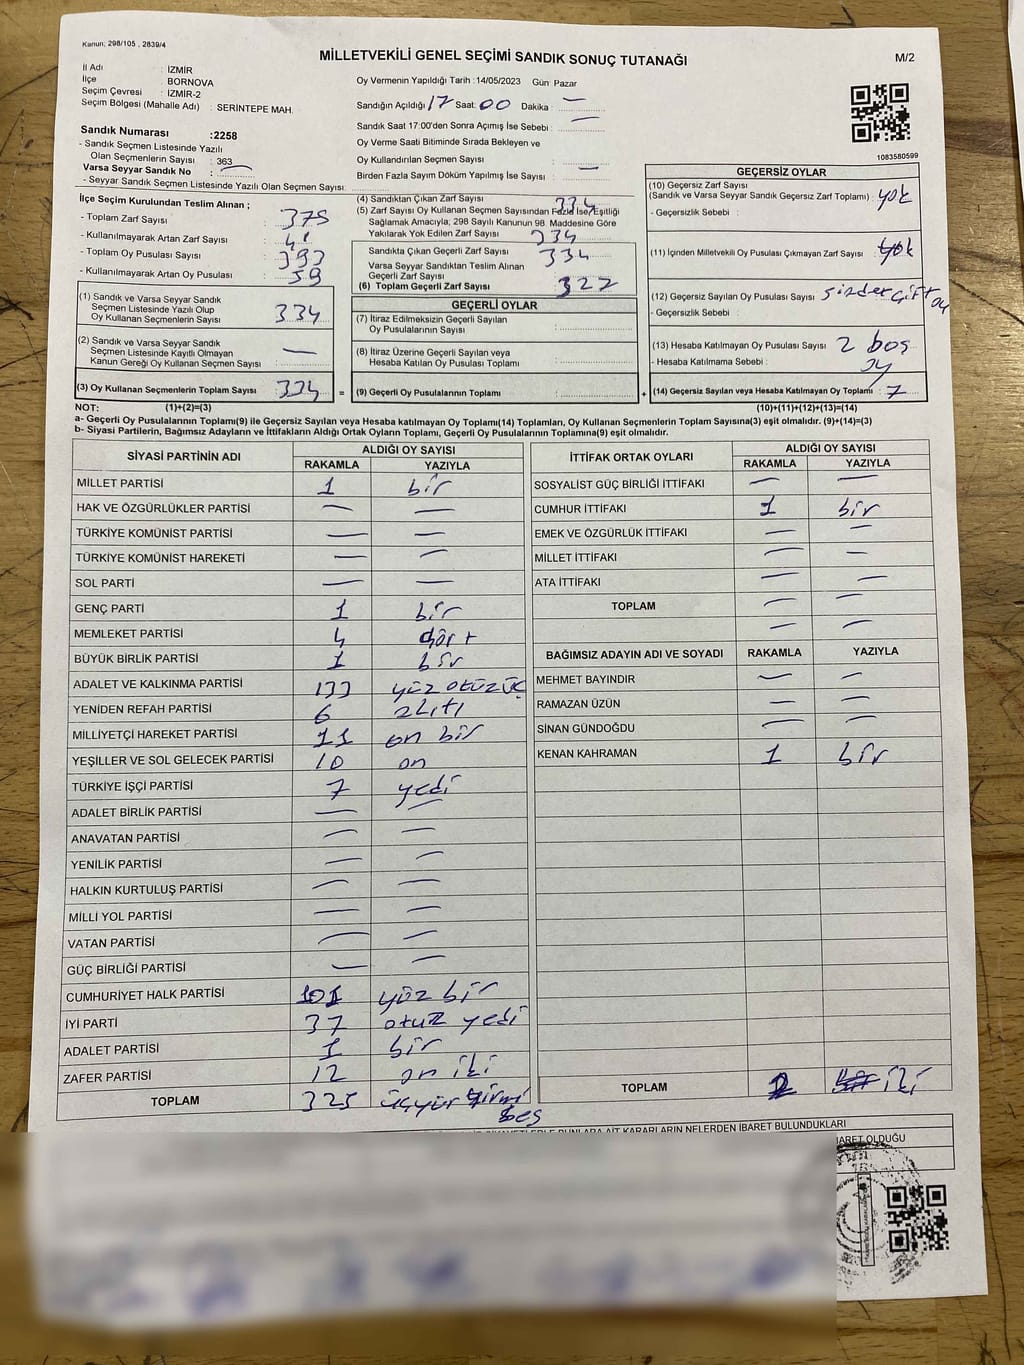 Kanun; 298/105 , 2839/4
MİLLETVEKİLİ GENEL SEÇİMİ SANDIK SONUÇ TUTANAĞI
M/2
İl Adı : İZMİR
İlçe : BORNOVA
Seçim Çevresi : İZMİR-2
Seçim Bölgesi (Mahalle Adı) : SERİNTEPE MAH.
Sandık Numarası :2258
- Sandık Seçmen Listesinde Yazılı
Olan Seçmenlerin Sayısı : 363
Varsa Seyyar Sandık No : —
- Seyyar Sandık Seçmen Listesinde Yazılı Olan Seçmen Sayısı:
Oy Vermenin Yapıldığı Tarih :14/05/2023 Gün Pazar
Sandığın Açıldığı 17 Saat: 00 Dakika : —
Sandık Saat 17:00'den Sonra Açılmış İse Sebebi : —
Oy Verme Saati Bitiminde Sırada Bekleyen ve
Oy Kullandırılan Seçmen Sayısı :
Birden Fazla Sayım Döküm Yapılmış İse Sayısı : —
1083580599
İlçe Seçim Kurulundan Teslim Alınan ;
- Toplam Zarf Sayısı : 375
- Kullanılmayarak Artan Zarf Sayısı : 41
- Toplam Oy Pusulası Sayısı : 393
- Kullanılmayarak Artan Oy Pusulası : 59
(1) Sandık ve Varsa Seyyar Sandık
Seçmen Listesinde Yazılı Olup
Oy Kullanan Seçmenlerin Sayısı : 334
(2) Sandık ve Varsa Seyyar Sandık
Seçmen Listesinde Kayıtlı Olmayan
Kanun Gereği Oy Kullanan Seçmen Sayısı : —
(3) Oy Kullanan Seçmenlerin Toplam Sayısı : 334 =
(4) Sandıktan Çıkan Zarf Sayısı : 334
(5) Zarf Sayısı Oy Kullanan Seçmen Sayısından Fazla İse, Eşitliği
Sağlamak Amacıyla; 298 Sayılı Kanunun 98. Maddesine Göre
Yakılarak Yok Edilen Zarf Sayısı : 334
Sandıkta Çıkan Geçerli Zarf Sayısı : 334
Varsa Seyyar Sandıktan Teslim Alınan
Geçerli Zarf Sayısı :
(6) Toplam Geçerli Zarf Sayısı : 327
GEÇERLİ OYLAR
(7) İtiraz Edilmeksizin Geçerli Sayılan
Oy Pusulalarının Sayısı :
(8) İtiraz Üzerine Geçerli Sayılan veya
Hesaba Katılan Oy Pusulası Toplamı :
(9) Geçerli Oy Pusulalarının Toplamı : +
GEÇERSİZ OYLAR
(10) Geçersiz Zarf Sayısı
(Sandık ve Varsa Seyyar Sandık Geçersiz Zarf Toplamı) : yok
- Geçersizlik Sebebi :
(11) İçinden Milletvekili Oy Pusulası Çıkmayan Zarf Sayısı : yok
(12) Geçersiz Sayılan Oy Pusulası Sayısı : çift oy
- Geçersizlik Sebebi :
(13) Hesaba Katılmayan Oy Pusulası Sayısı : 2 boş
- Hesaba Katılmama Sebebi : oy
(14) Geçersiz Sayılan veya Hesaba Katılmayan Oy Toplamı : 7
NOT: (1)+(2)=(3) (10)+(11)+(12)+(13)=(14)
a- Geçerli Oy Pusulalarının Toplamı(9) ile Geçersiz Sayılan veya Hesaba katılmayan Oy Toplamı(14) Toplamları, Oy Kullanan Seçmenlerin Toplam Sayısına(3) eşit olmalıdır. (9)+(14)=(3)
b- Siyasi Partilerin, Bağımsız Adayların ve İttifakların Aldığı Ortak Oyların Toplamı, Geçerli Oy Pusulalarının Toplamına(9) eşit olmalıdır.
SİYASİ PARTİNİN ADI ALDIĞI OY SAYISI
RAKAMLA YAZIYLA
MİLLET PARTİSİ 1 bir
HAK VE ÖZGÜRLÜKLER PARTİSİ — —
TÜRKİYE KOMÜNİST PARTİSİ — —
TÜRKİYE KOMÜNİST HAREKETİ — —
SOL PARTİ — —
GENÇ PARTİ 1 bir
MEMLEKET PARTİSİ 4 dört
BÜYÜK BİRLİK PARTİSİ 1 bir
ADALET VE KALKINMA PARTİSİ 133 yüz otuz üç
YENİDEN REFAH PARTİSİ 6 altı
MİLLİYETÇİ HAREKET PARTİSİ 11 on bir
YEŞİLLER VE SOL GELECEK PARTİSİ 10 on
TÜRKİYE İŞÇİ PARTİSİ 7 yedi
ADALET BİRLİK PARTİSİ — —
ANAVATAN PARTİSİ — —
YENİLİK PARTİSİ — —
HALKIN KURTULUŞ PARTİSİ — —
MİLLİ YOL PARTİSİ — —
VATAN PARTİSİ — —
GÜÇ BİRLİĞİ PARTİSİ — —
CUMHURİYET HALK PARTİSİ 101 yüz bir
İYİ PARTİ 37 otuz yedi
ADALET PARTİSİ 1 bir
ZAFER PARTİSİ 12 on iki
TOPLAM 325 üçyüz yirmi
beş
İTTİFAK ORTAK OYLARI ALDIĞI OY SAYISI
RAKAMLA YAZIYLA
SOSYALİST GÜÇ BİRLİĞİ İTTİFAKI — —
CUMHUR İTTİFAKI 1 bir
EMEK VE ÖZGÜRLÜK İTTİFAKI — —
MİLLET İTTİFAKI — —
ATA İTTİFAKI — —
TOPLAM — —
— —
BAĞIMSIZ ADAYIN ADI VE SOYADI RAKAMLA YAZIYLA
MEHMET BAYINDIR — —
RAMAZAN ÜZÜN — —
SİNAN GÜNDOĞDU — —
KENAN KAHRAMAN 1 bir
TOPLAM 2 iki
KARARLARIN NELERDEN İBARET BULUNDUKLARI
İBARET OLDUĞU